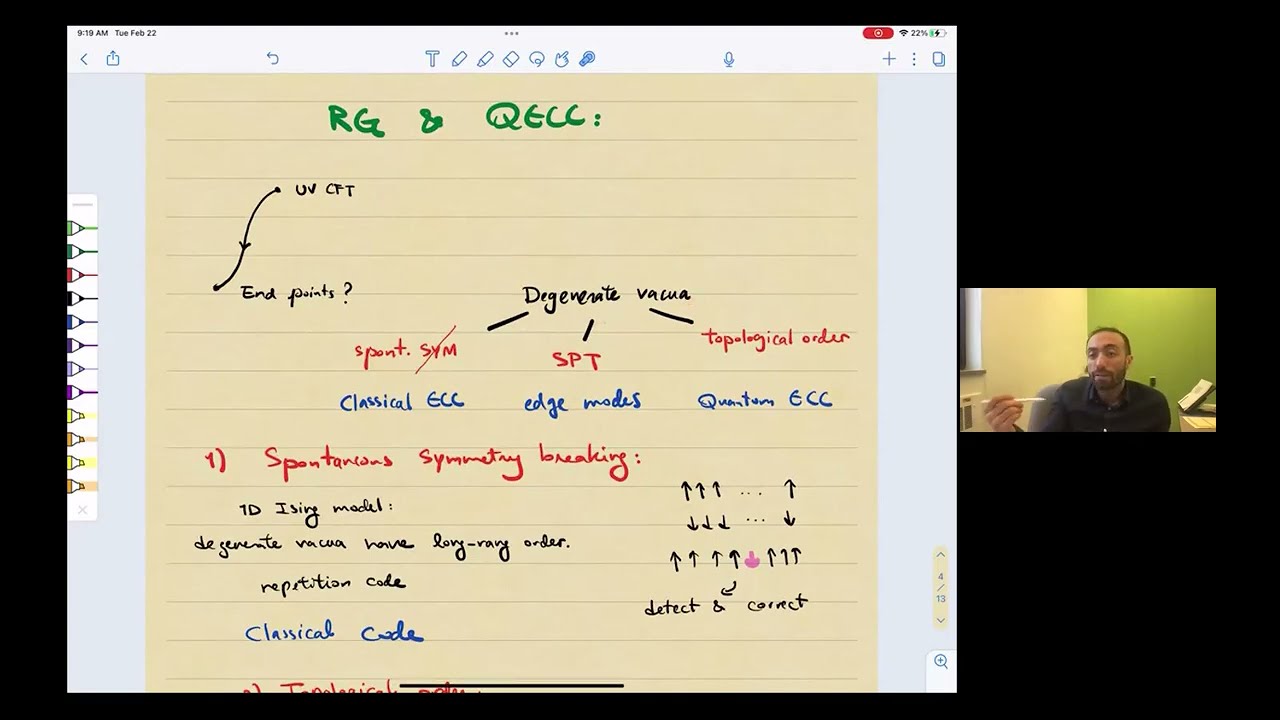 9:19 AM Tue Feb 22
22%
RG & QECC:
UV CFT
End points?
Degenerate vacua
spont. SYM
SPT
topological order
Classical ECC
edge modes
Quantum ECC
1) Spontanous symmetry breaking:
1D Ising model:
↑↑↑ ... ↑
↓↓↓ ... ↓
degenerate vacua have long-rang order.
↑↑ ↑↑ ↓ ↑↑↑
repetition code
detect & correct
Classical code
2) Topological order:
4
/
13